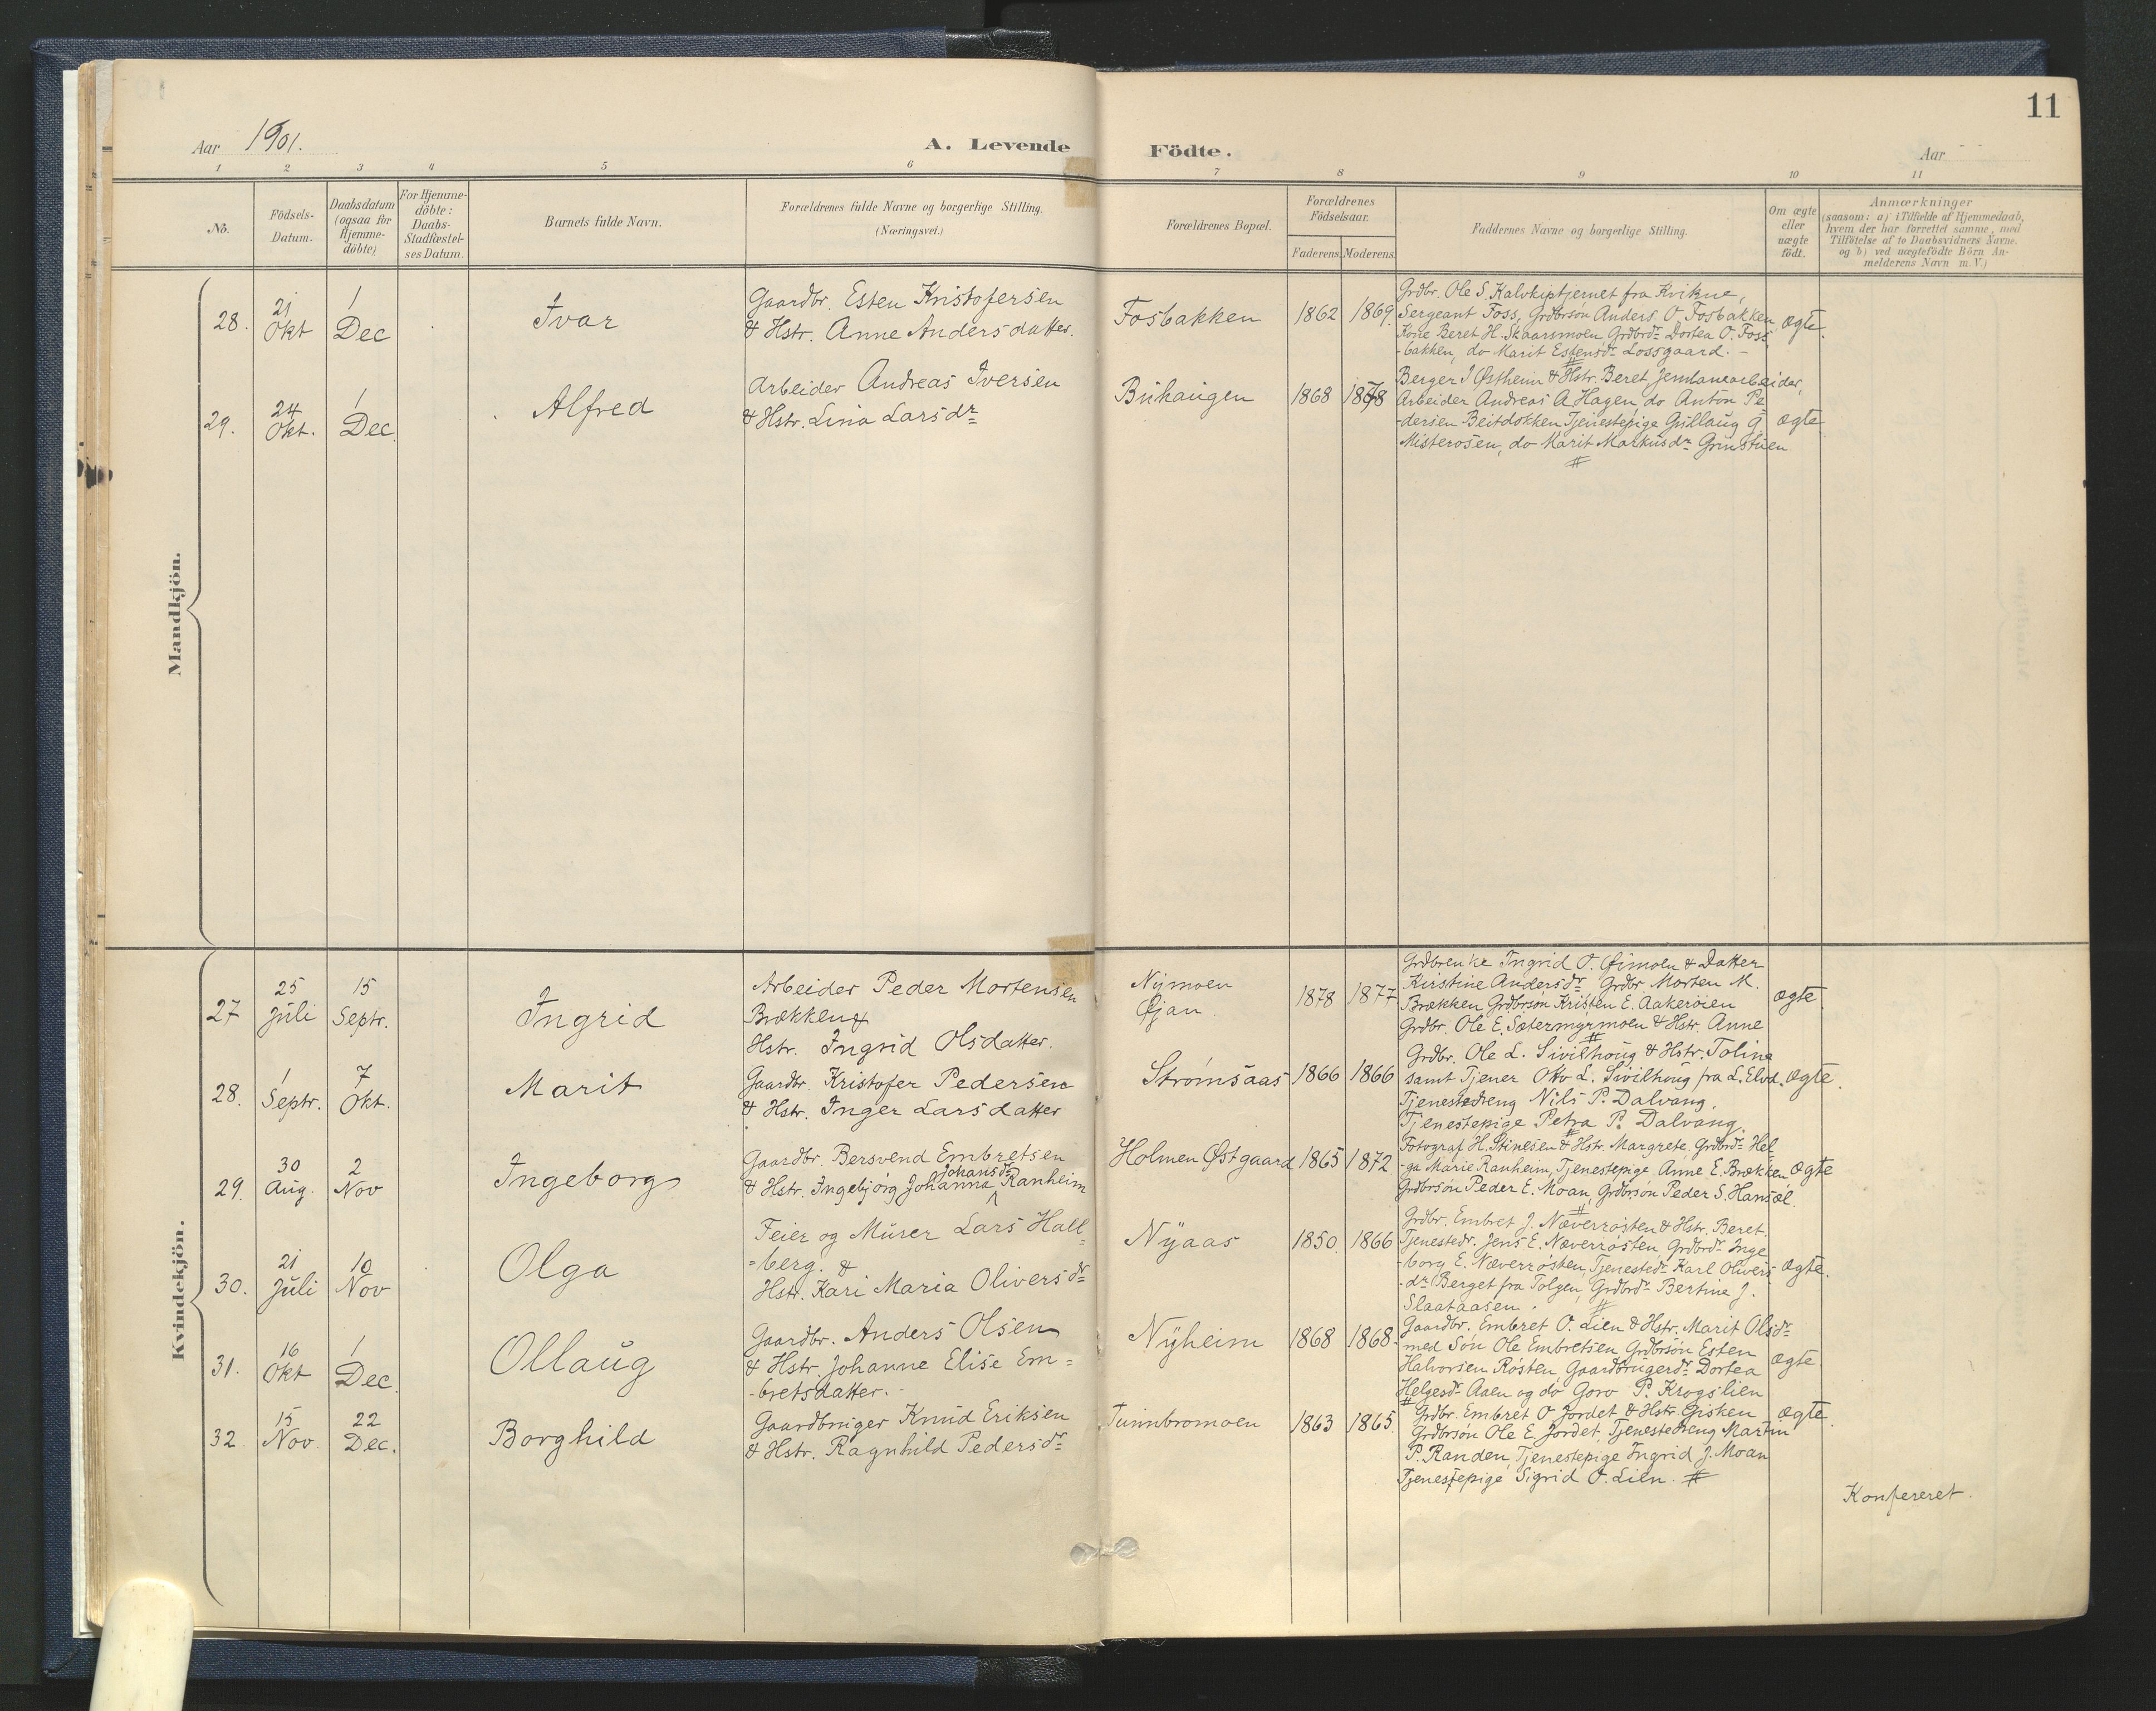 11
Aar 1901.
A. Levende Födte.
Aar
1 2 3 4 5 6 7 8 9 10 11
No.
Födsels-
Datum.
Daabsdatum
(ogsaa for
Hjemme-
döbte)
For Hjemme-
döbte:
Daabs-
Stadfæstel-
ses Datum.
Barnets fulde Navn.
Forældrenes fulde Navne og borgerlige Stilling.
(Næringsvei.)
Forældrenes Bopæl.
Forældrenes
Födselsaar.
Faderens. Moderens.
Faddernes Navne og borgerlige Stilling.
Om ægte
eller
uægte
födt.
Anmærkninger
(saasom: a) i Tilfælde af Hjemmedaab,
hvem der har forrettet samme, med
Tilföielse af to Daabsvidners Navne.
og b) ved uægtefödte Börn An-
melderens Navn m.V.)
Mandkjön.
28.
21
Okt
1
Dec
Ivar
Gaardbr. Esten Kristofersen
& Hstr. Anne Andersdatter.
Fosbakken
1862 1869.
Grdbr. Ole S. Kalvkiptjernet fra Kvikne,
Sergeant Foss, Grdbrsön Anders O. Fosbakken
Kone Beret H. Skaarsmoen Grdbrdr Dortea O. Foss
-bakken, do Marit Estensdr Lossgaard. -
ægte.
29.
24
Okt.
1
Dec.
Alfred
Arbeider Andreas Iversen
& Hstr. Lina Larsdr
Buhaugen
1868 1878
Berger J Østheim & Hstr. Beret, Jernbanearbeider,
Arbeider Andreas A Hagen, do Anton Pe
-dersen Beitdokken Tjenestepige Gullaug G
Misterosen, do Marit Markusdr Grinstuen
#
ægte
Kvindekjön.
27
25
Juli
15
Septr.
Ingrid
Arbeider Peder Mortensen
Brækken &
Hstr. Ingrid Olsdatter.
Nymoen
Øjan.
1878 1877
Grdbrenke Ingrid O. Øimoen & Datter
Kirstine Andersdr, Grdbr Morten M.
Brækken Grdbrsön Kristen E. Aakerøien
Grdbr. Ole E. Sætermyrmoen & Hstr. Anne
#
ægte.
28.
1
Septr.
7
Okt.
Marit
Gaardbr. Kristofer Pedersen
& Hstr. Inger Larsdatter
Strömsaas
1866 1866
Grdbr. Ole L. Sivilhoug & Hstr. Toline
samt Tjener Otto L. Sivilhoug fra L. Elvd.
Tjenestedreng Nils P. Dalvang.
Tjenestepige Petra P. Dalvang.
#
ægte.
29.
30
Aug.
2
Nov
Ingeborg
Gaardbr. Bersvend Embretsen
Johansdr
& Hstr. Ingebjörg Johanna Ranheim
Holmen Østgaard
1865 1872
Fotograf H. Stinesen & Hstr. Margrete, Grdbrdr Hel-
-ga Marie Ranheim, Tjenestepige Anne E. Brækken
Grdbrsön Peder E. Moan, Grdbrsön Peder S. Hansæl.
#
ægte
30.
21
Juli
10
Nov
Olga
Feier og Murer Lars Hall=
=berg. &
Hstr. Kari Maria Oliversdr
Nyaas
1850. 1866
Grdbr. Embret J. Næverrösten & Hstr. Beret.
Tjenestedr. Jens E. Næverrösten, Grdbrdr Inge
-borg E. Næverrösten, Tjenestedr Karl Olivers-
-dr Berget fra Tolgen, Grdbrdr Bertine J.
Slaataasen.
#
ægte.
31.
16
Okt
1
Dec.
Ollaug
Gaardbr. Anders Olsen
& Hstr. Johanne Elise Em=
-bretsdatter.
Nyheim
1868 1868.
Gaardbr. Embret O. Lien & Hstr. Marit Olsdr
med Sön Ole Embretsen Grdbrsön Esten
Halvorsen Rösten Gaardbrugerdr Dortea
Helgesdr Aaen og do Goro P. Krogslien
#
ægte
32
15
Nov.
22
Dec.
Borghild
Gaardbruger Knud Eriksen
& Hstr. Ragnhild Pedersdr
Tunnbromoen
1863 1865.
Grdbr. Embret O Jordet & Hstr. Gisken
Grdbrsön Ole E. Jordet, Tjenestedreng Martin
P. Randen, Tjenestepige Ingrid J. Moan
Tjenestepige Sigrid O. Lien. #
ægte.
Konfereret.